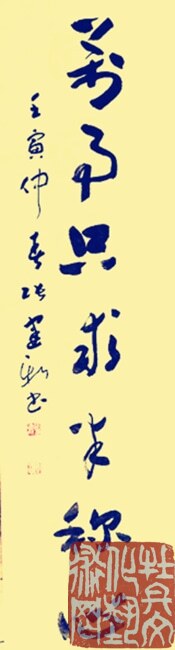 万事只求半称心
壬寅仲春张建新书